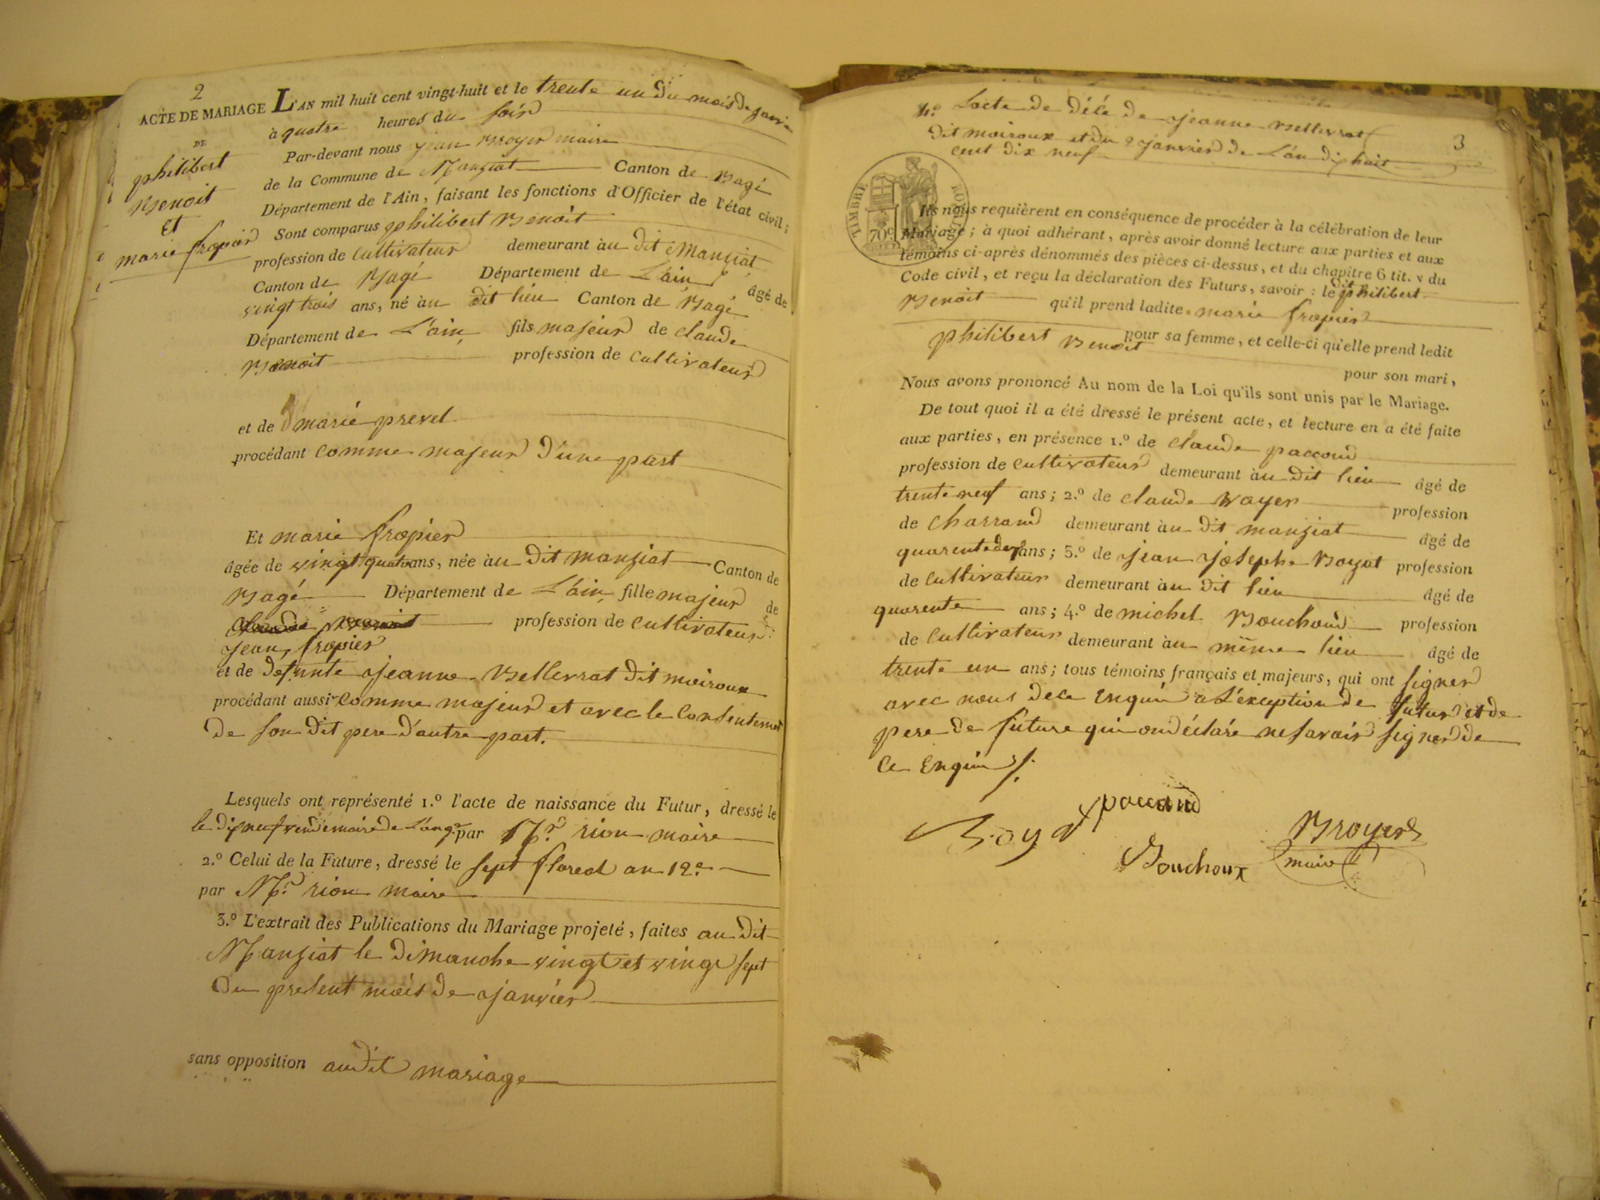 2
ACTE DE MARIAGE
DE
philibert
Benoit
Et
marie fropier
L'AN mil huit cent vingt-huit et le trente un du mois de janvier
à quatre heures du soir
Par-devant nous jean Broyer maire
de la Commune de Manziat Canton de Bagé
Département de l'Ain, faisant les fonctions d'Officier de l'état civil;
Sont comparus philibert Benoit
profession de Cultivateur demeurant au dit Manziat
Canton de Bagé Département de L'ain âgé de
vingt trois ans, né au dit lieu Canton de Bagé
Département de L'ain, fils majeur de claude
Benoit profession de Cultivateur
et de marie prevel
procédant comme majeur d'une part
Et marie fropier
âgée de vingt quatre ans, née au dit manziat Canton de
Bagé Département de L'ain, fille majeur de
profession de Cultivateur
jean fropier
et de defunte jeanne Bellevrat dit moiroux
procédant aussi comme majeur et avec le Consentement
de son dit pere d'autre part.
Lesquels ont représenté 1.º l'acte de naissance du Futur, dressé le
le dix neuf vendemiaire de L'an par Mr. rion maire
2.º Celui de la Future, dressé le sept floreal an 12e
par Mr. rion maire
3.º L'extrait des Publications du Mariage projeté, faites au dit
Manziat le dimanche vingt et vingt sept
du present mois de janvier
sans opposition audit mariage
3
4º Lacte de décé de jeanne Bellevrat
dit moiroux et du 9 janvier de L'an dix huit
cent dix neuf
TIMBRE ROYAL
70c
Ils nous requièrent en conséquence de procéder à la célébration de leur
Mariage; à quoi adhérant, après avoir donné lecture aux parties et aux
témoins ci-après dénommés des pièces ci-dessus, et du chapitre 6 tit. v du
Code civil, et reçu la déclaration des Futurs, savoir: le dit philibert
Benoit qu'il prend ladite marie fropier
pour sa femme, et celle-ci qu'elle prend ledit
philibert Benoit
pour son mari,
Nous avons prononcé Au nom de la Loi qu'ils sont unis par le Mariage.
De tout quoi il a été dressé le présent acte, et lecture en a été faite
aux parties, en présence 1.º de claude paccoud
profession de Cultivateur demeurant au dit lieu âgé de
trente neuf ans; 2.º de claude Boyer profession
de Charrand demeurant au dit manziat âgé de
quarente deux ans; 3.º de jean joseph Boyat profession
de Cultivateur demeurant au dit lieu âgé de
quarente ans; 4.º de michel Bouchoux profession
de Cultivateur demeurant au même lieu âgé de
trente un ans; tous témoins français et majeurs, qui ont signer
avec nous de ce Enquis à L'exception de futur et de
pere de future qui on déclaré ne savoir signer de
ce Enquis
Boyat
paccaud
Bouchoux
Broyer
maire